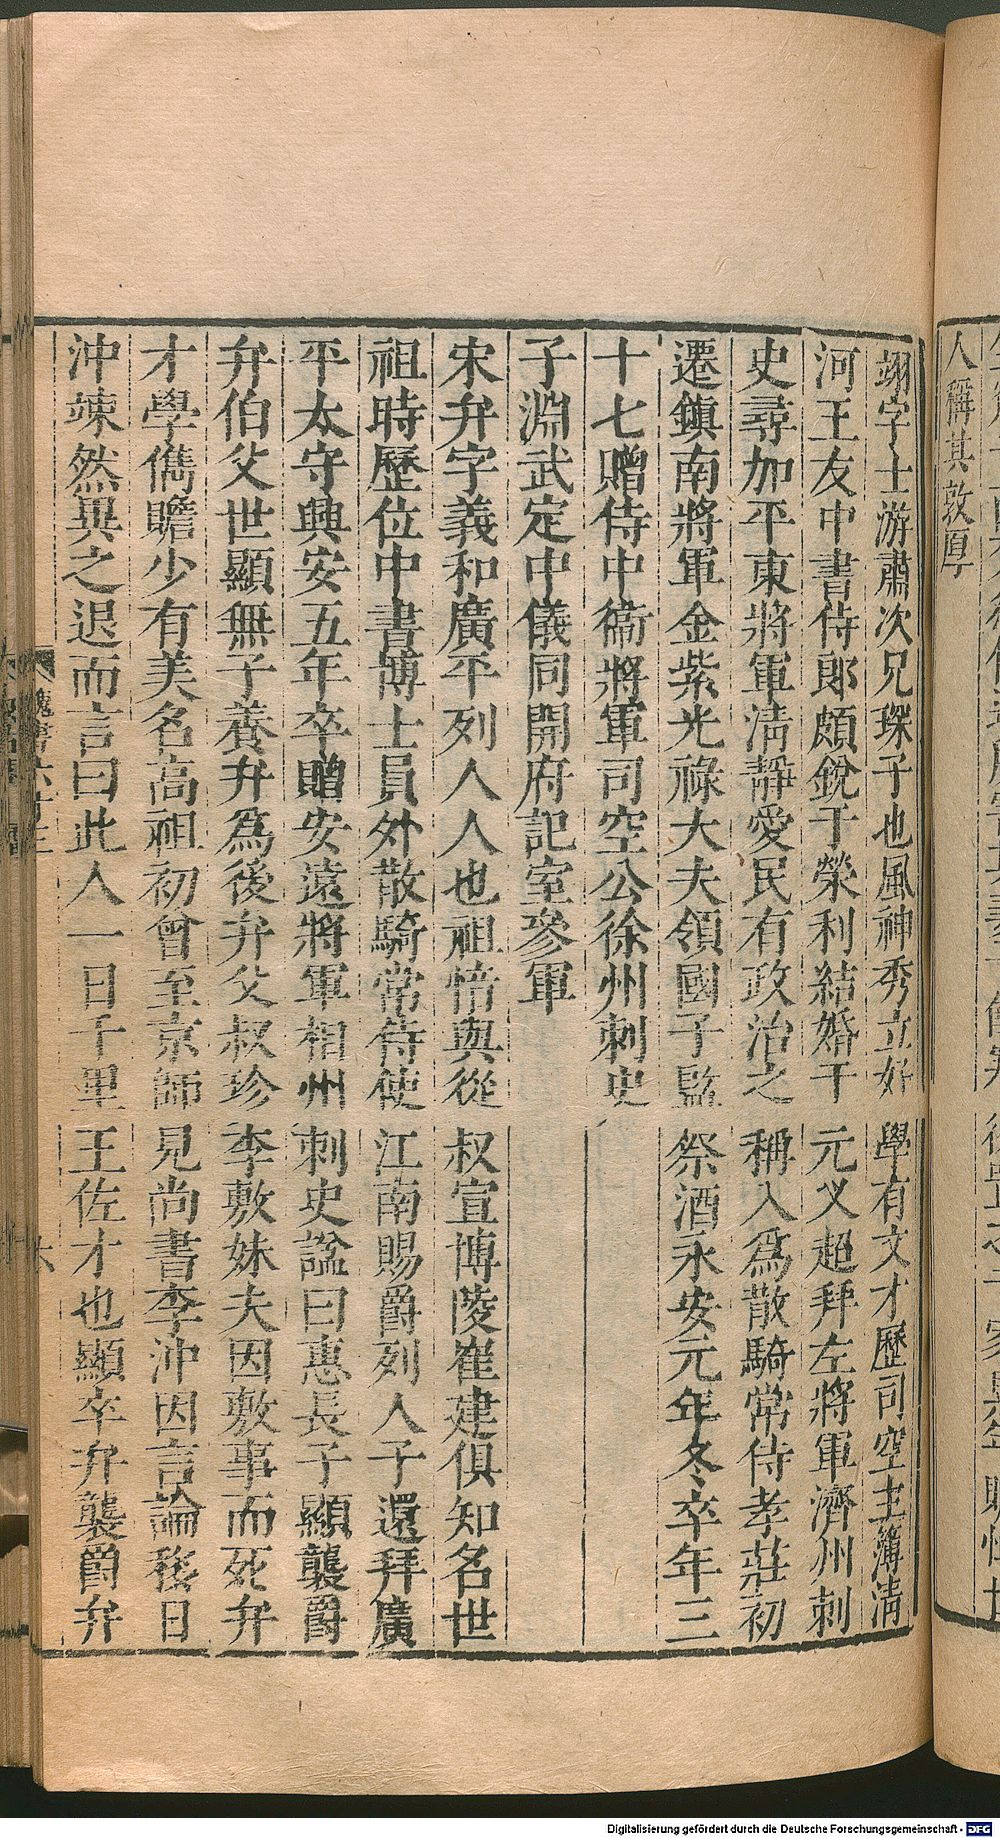 人稱其敦厚
翊字士游肅次兄琛子也風神秀立好學有文才歷司空主簿清
河王友中書侍郎頗銳于榮利結婚于元乂超拜左將軍濟州刺
史尋加平東將軍清靜愛民有政治之稱入爲散騎常侍孝莊初
遷鎮南將軍金紫光祿大夫領國子監祭酒永安元年冬卒年三
十七贈侍中衞將軍司空公徐州刺史
子淵武定中儀同開府記室參軍
宋弁字義和廣平列人人也祖愔與從叔宣博陵崔建俱知名世
祖時歷位中書博士員外散騎常侍使江南賜爵列人子還拜廣
平太守興安五年卒贈安遠將軍相州刺史諡曰惠長子顯襲爵
弁伯父世顯無子養弁爲後弁父叔珍李敷妹夫因敷事而死弁
才學儁贍少有美名高祖初曾至京師見尚書李沖因言論移日
沖竦然異之退而言曰此人一日千里王佐才也顯卒弁襲爵弁
魏書六十三
六
Digitalisierung gefördert durch die Deutsche Forschungsgemeinschaft - DFG